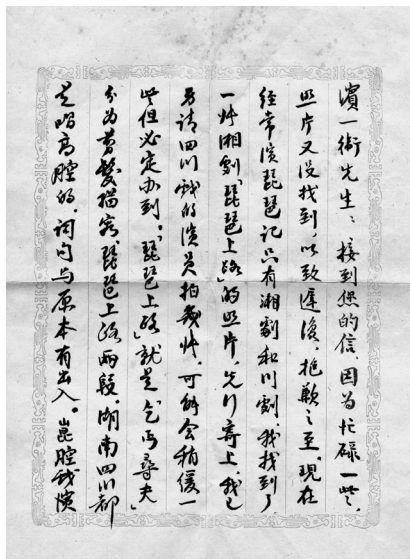 濱一衛先生：接到您的信，因为忙碌一些，
照片又没找到，以致遲復，抱歉之至。現在
經常演琵琶记只有湘劇和川劇，我找到了
一张湘劇「琵琶上路」的照片，先行寄上，我已
另请四川戏的演员拍幾张，可能会稍缓一
些但必定办到。「琵琶上路」就是「乞丐尋夫」
分为剪髮描容琵琶上路兩段。湖南四川都
是唱高腔的，词句与原本有出入。崑腔我演